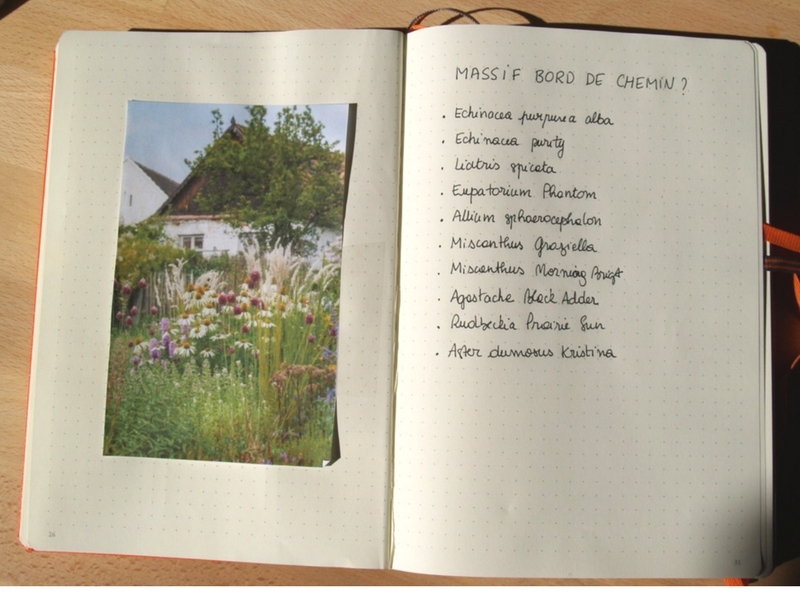 MASSIF BORD DE CHEMIN ?
. Echinacea purpurea alba
. Echinacea purity
. Liatris spicata
. Eupatorium Phantom
. Allium sphaerocephalon
. Miscanthus Graziella
. Miscanthus Morning
. Agastache Black Adder
. Rudbeckia Prairie Sun
. Aster dumosus Kristina